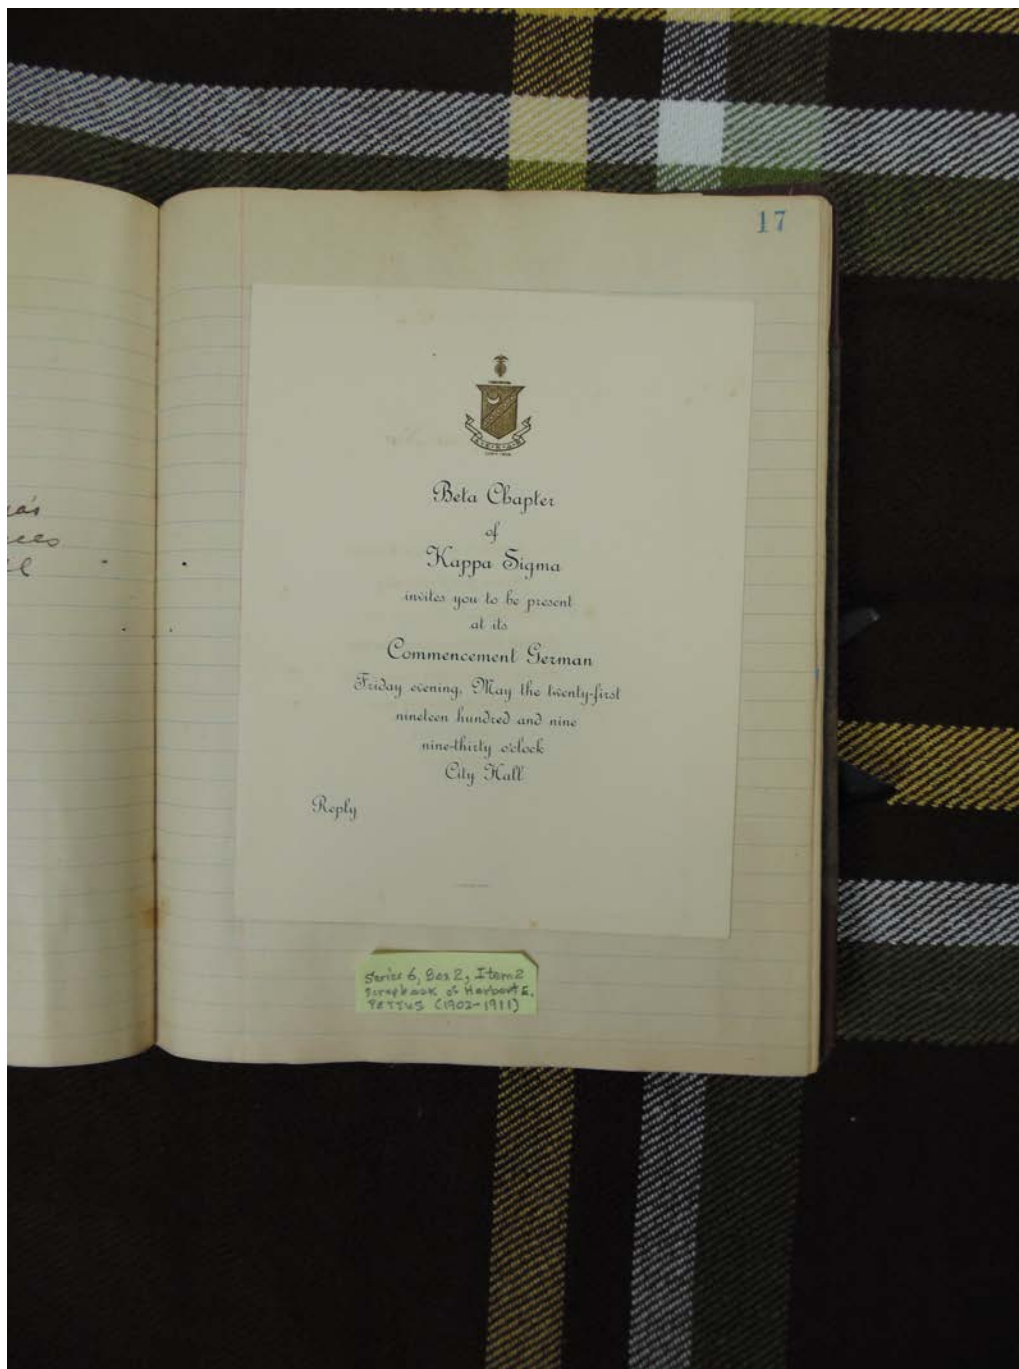 17
Beta Chapter
of
Kappa Sigma
invites you to be present
at its
Commencement German
Friday evening, May the twenty-first
nineteen hundred and nine
nine-thirty o'clock
City Hall
Reply
Series 6, Box 2, Item 2
Scrapbook of Herbert E.
PETTUS (1902-1911)